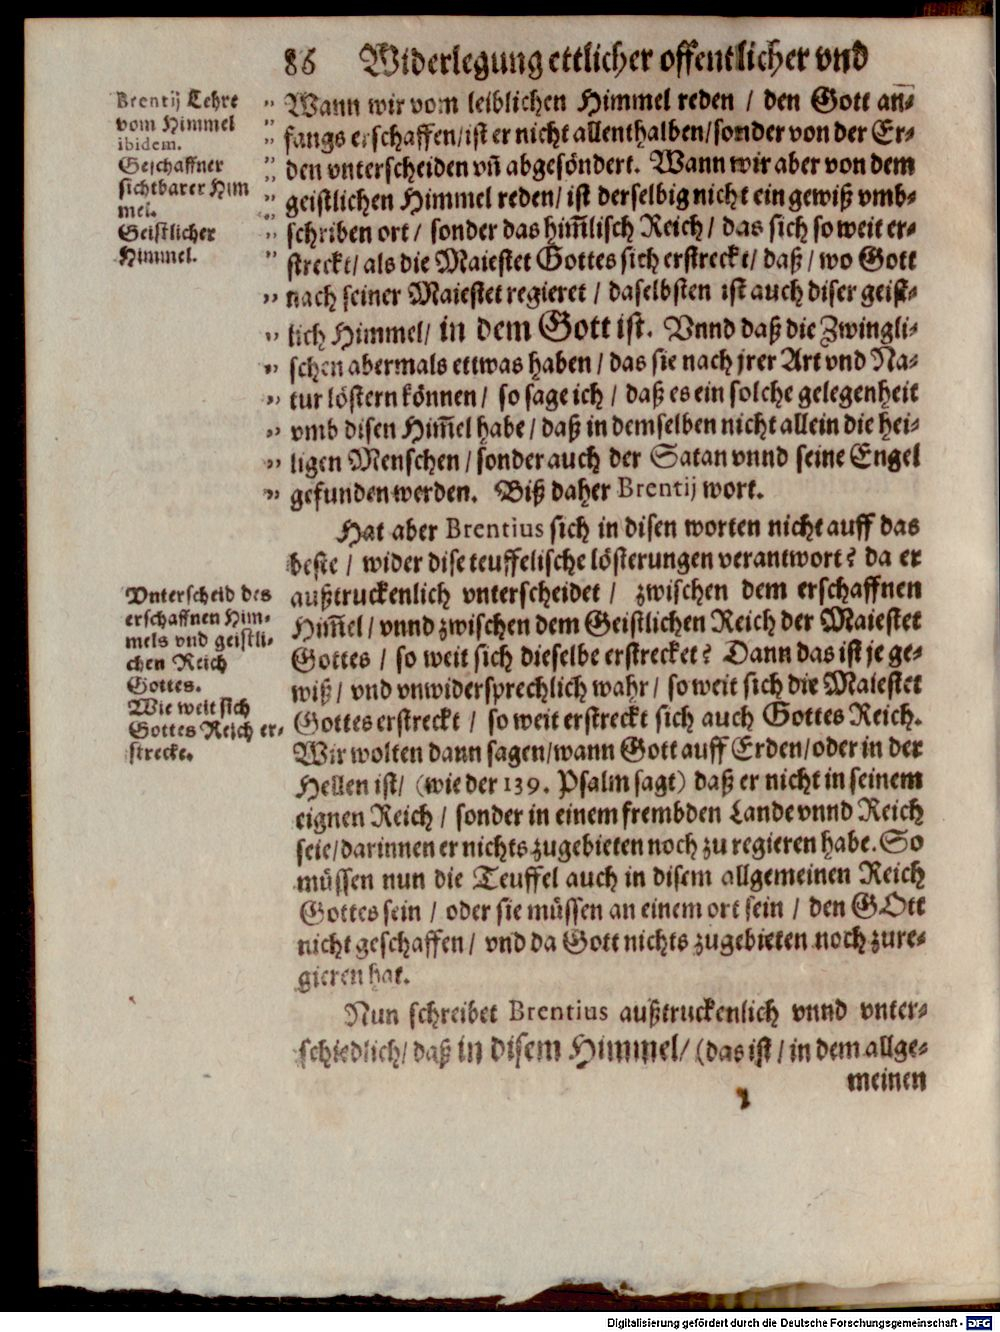 86 Widerlegung ettlicher offentlicher vnd
Brentij Lehre
vom Himmel
ibidem.
Geschaffner
sichtbarer Him
mel.
Geistlicher
Himmel.
„ Wann wir vom leiblichen Himmel reden / den Gott an̅⸗
„ fangs erschaffen/ist er nicht allenthalben/sonder von der Er⸗
„ den vnterscheiden vn̅ abgesöndert. Wann wir aber von dem
„ geistlichen Himmel reden/ ist derselbig nicht ein gewiß vmb⸗
„ schriben ort / sonder das him̅lisch Reich / das sich so weit er⸗
„ streckt/ als die Maiestet Gottes sich erstreckt/ daß / wo Gott
„ nach seiner Maiestet regieret / daselbsten ist auch diser geist⸗
„ lich Himmel/ in dem Gott ist. Vnnd daß die Zwingli⸗
„ schen abermals ettwas haben / das sie nach jrer Art vnd Na⸗
„ tur löstern können / so sage ich / daß es ein solche gelegenheit
„ vmb disen Him̅el habe / daß in demselben nicht allein die hei⸗
„ ligen Menschen / sonder auch der Satan vnnd seine Engel
„ gefunden werden. Biß daher Brentij wort.
Hat aber Brentius sich in disen worten nicht auff das
beste / wider dise teuffelische lösterungen verantwort? da er
außtruckenlich vnterscheidet / zwischen dem erschaffnen
Him̅el / vnnd zwischen dem Geistlichen Reich der Maiestet
Gottes / so weit sich dieselbe erstrecket? Dann das ist je ge⸗
wiß / vnd vnwidersprechlich wahr / so weit sich die Maiestet
Gottes erstreckt / so weit erstreckt sich auch Gottes Reich.
Wir wolten dann sagen/wann Gott auff Erden/oder in der
Hellen ist/ (wie der 139. Psalm sagt) daß er nicht in seinem
eignen Reich / sonder in einem frembden Lande vnnd Reich
seie/darinnen er nichts zugebieten noch zu regieren habe. So
müssen nun die Teuffel auch in disem allgemeinen Reich
Gottes sein / oder sie müssen an einem ort sein / den GOtt
nicht geschaffen / vnd da Gott nichts zugebieten noch zure⸗
gieren hat.
Vnterscheid des
erschaffnen Him⸗
mels vnd geistli⸗
chen Reich
Gottes.
Wie weit sich
Gottes Reich er⸗
strecke.
Nun schreibet Brentius außtruckenlich vnnd vnter⸗
schiedlich/ daß in disem Himmel/ (das ist / in dem allge⸗
meinen
Digitalisierung gefördert durch die Deutsche Forschungsgemeinschaft - DFG